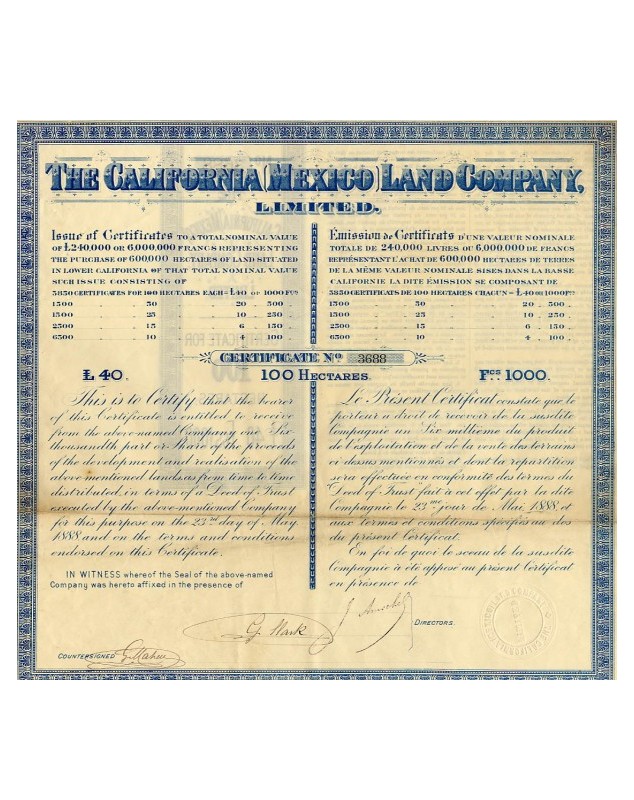 THE CALIFORNIA (MEXICO) LAND COMPANY,
LIMITED.
Issue of Certificates TO A TOTAL NOMINAL VALUE
OF £240,000 OR 6,000,000 FRANCS REPRESENTING
THE PURCHASE OF 600,000 HECTARES OF LAND SITUATED
IN LOWER CALIFORNIA OF THAT TOTAL NOMINAL VALUE
SUCH ISSUE CONSISTING OF
3850 CERTIFICATES FOR 100 HECTARES EACH=£40 OR 1000 Fcs
1500 .. 50 .. .. 20 .. 500 ..
1500 .. 25 .. .. 10 .. 250 ..
2500 .. 15 .. .. 6 .. 150 ..
6500 .. 10 .. .. 4 .. 100 ..
Émission de Certificats D'UNE VALEUR NOMINALE
TOTALE DE 240,000 LIVRES OU 6,000,000 DE FRANCS
REPRÉSENTANT L'ACHAT DE 600,000 HECTARES DE TERRES
DE LA MÊME VALEUR NOMINALE SISES DANS LA BASSE
CALIFORNIE LA DITE ÉMISSION SE COMPOSANT DE
3850 CERTIFICATS DE 100 HECTARES CHACUN=£40 OU 1000 Fcs
1500 .. 50 .. .. 20 .. 500 ..
1500 .. 25 .. .. 10 .. 250 ..
2500 .. 15 .. .. 6 .. 150 ..
6500 .. 10 .. .. 4 .. 100 ..
CERTIFICATE No 3688
£40. 100 HECTARES. Fcs 1000.
This is to Certify that the bearer
of this Certificate is entitled to receive
from the above-named Company one Six
thousandth part or Share of the proceeds
of the development and realisation of the
above mentioned lands, as from time to time
distributed, in terms of a Deed of Trust
executed by the above-mentioned Company
for this purpose on the 23rd day of May
1888 and on the terms and conditions
endorsed on this Certificate.
IN WITNESS whereof the Seal of the above-named
Company was hereto affixed in the presence of
Le Présent Certificat constate que le
porteur a droit de recevoir de la susdite
Compagnie un Six millième du produit
de l'exploitation et de la vente des terrains
ci-dessus mentionnés et dont la répartition
sera effectuée en conformité des termes du
Deed of Trust fait à cet effet par la dite
Compagnie le 23me jour de Mai 1888 et
aux termes et conditions spécifiés au dos
du présent Certificat.
En foi de quoi le sceau de la susdite
Compagnie à été apposé au présent Certificat
en présence de
DIRECTORS.
COUNTERSIGNED